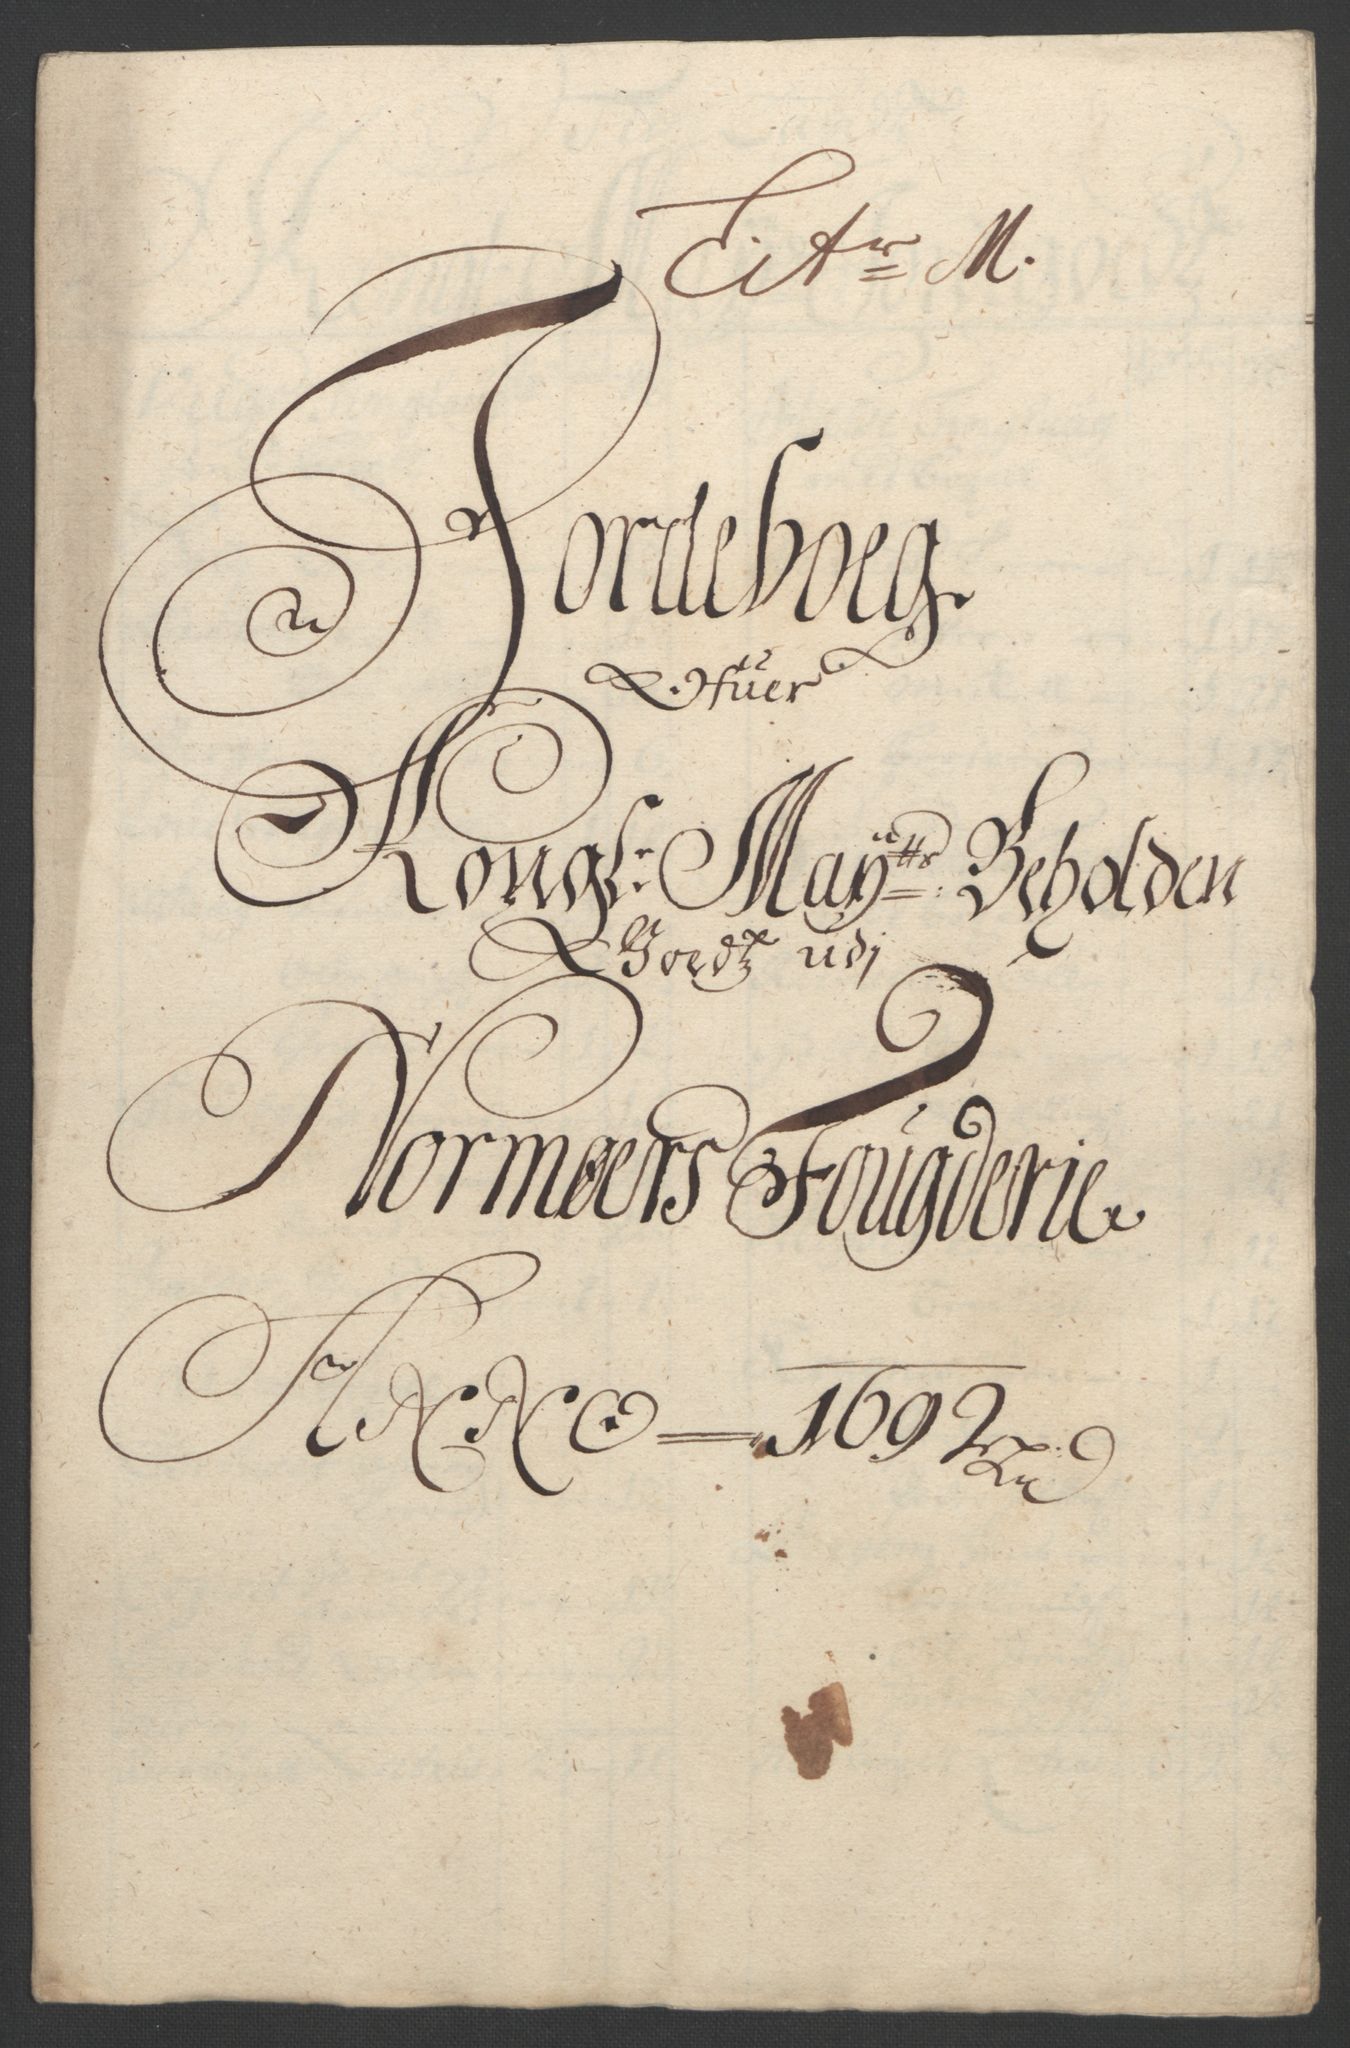 Litr M.
Jordeboeg
Ofuer
Kongl: Mayttz: Beholden
Goedtz udj
Normøers Fougderie
ANNO = 1692